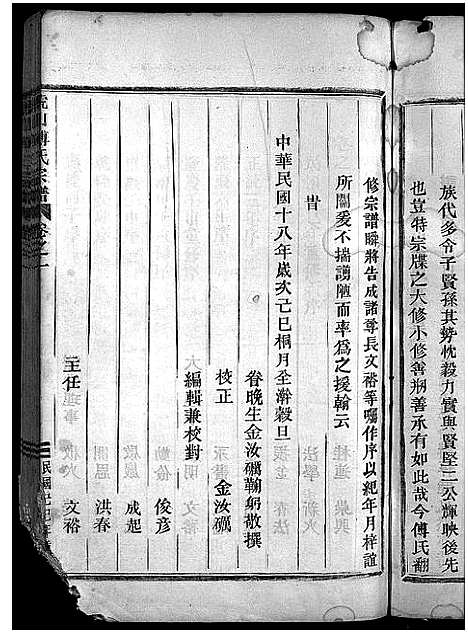 族代多令子賢孫其勢忱毅力實與賢堅二公輝映後先
也豈特宗牒之大修小修善剏善承有如此哉今傅氏翻
修宗譜瞬將告成諸尊長文裕等囑作序以紀年月梓誼
所關爰不揣譾陋而率為之援翰云
旹
中華民國十八年歲次己巳桐月全澣穀旦
眷晚生金汝礪鞠躬敬撰
校正 金汝礪
編輯兼校對
俊彥
成起
洪春
主任 文裕
傅氏宗譜 卷之一
民國己巳年